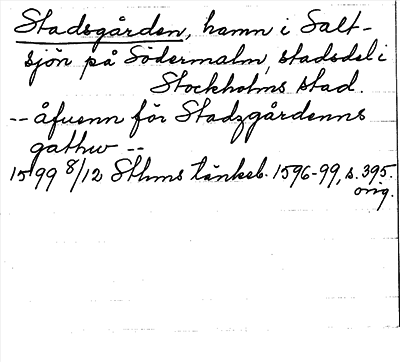 Stadsgården, hamn i Salt-
sjön på Södermalm, stadsdel i
Stockholms stad.
-- åfuenn för Stadzgårdenns
gathw --
1599 8/12 Sthms tänkeb. 1596-99, s. 395.
orig.